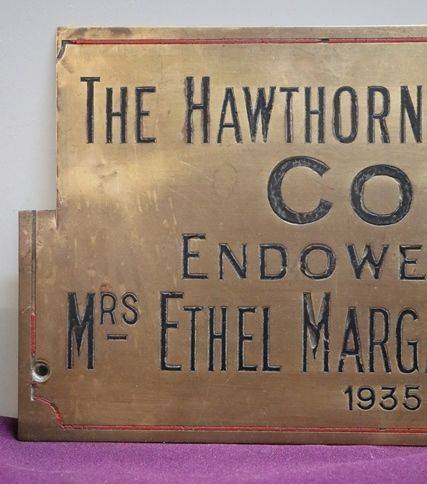 THE HAWTHORN
CO
ENDOWE
MRS ETHEL MARGA
1935